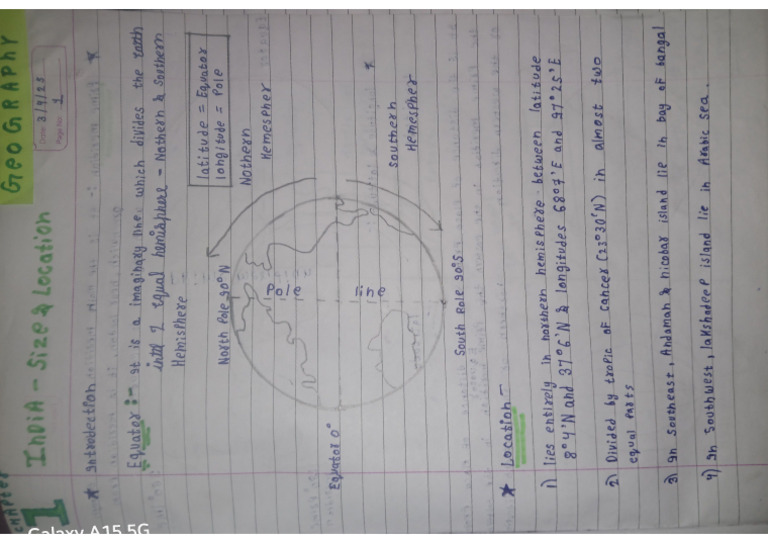 GEOGRAPHY
Date: 3/4/25
Page No: 1
CHAPTER
1 INDIA - SIZE & LOCATION
* Introdection
Equator :- It is a imaginary line. which divides the earth
into 2 equal hemisphere - Nothern & Soothern
Hemisphere
latitude = Equator
longitude = Pole
North Pole 90° N
Nothern
Hemespher
Pole line
Equator 0°
Soothern
Hemespher
South Pole 90°S
* Location -
1) lies entirely in northern hemisphere between latitude
8°4'N and 37°6'N & longitudes 68°7'E and 97°25'E
2) Divided by tropic of cancer (23°30'N) in almost two
equal Parts
3) In Sootheast, Andaman & nicobar island lie in bay of bangal
4) In Southwest, lakshadeep island lie in Arabic sea.
Galaxy A15 5G